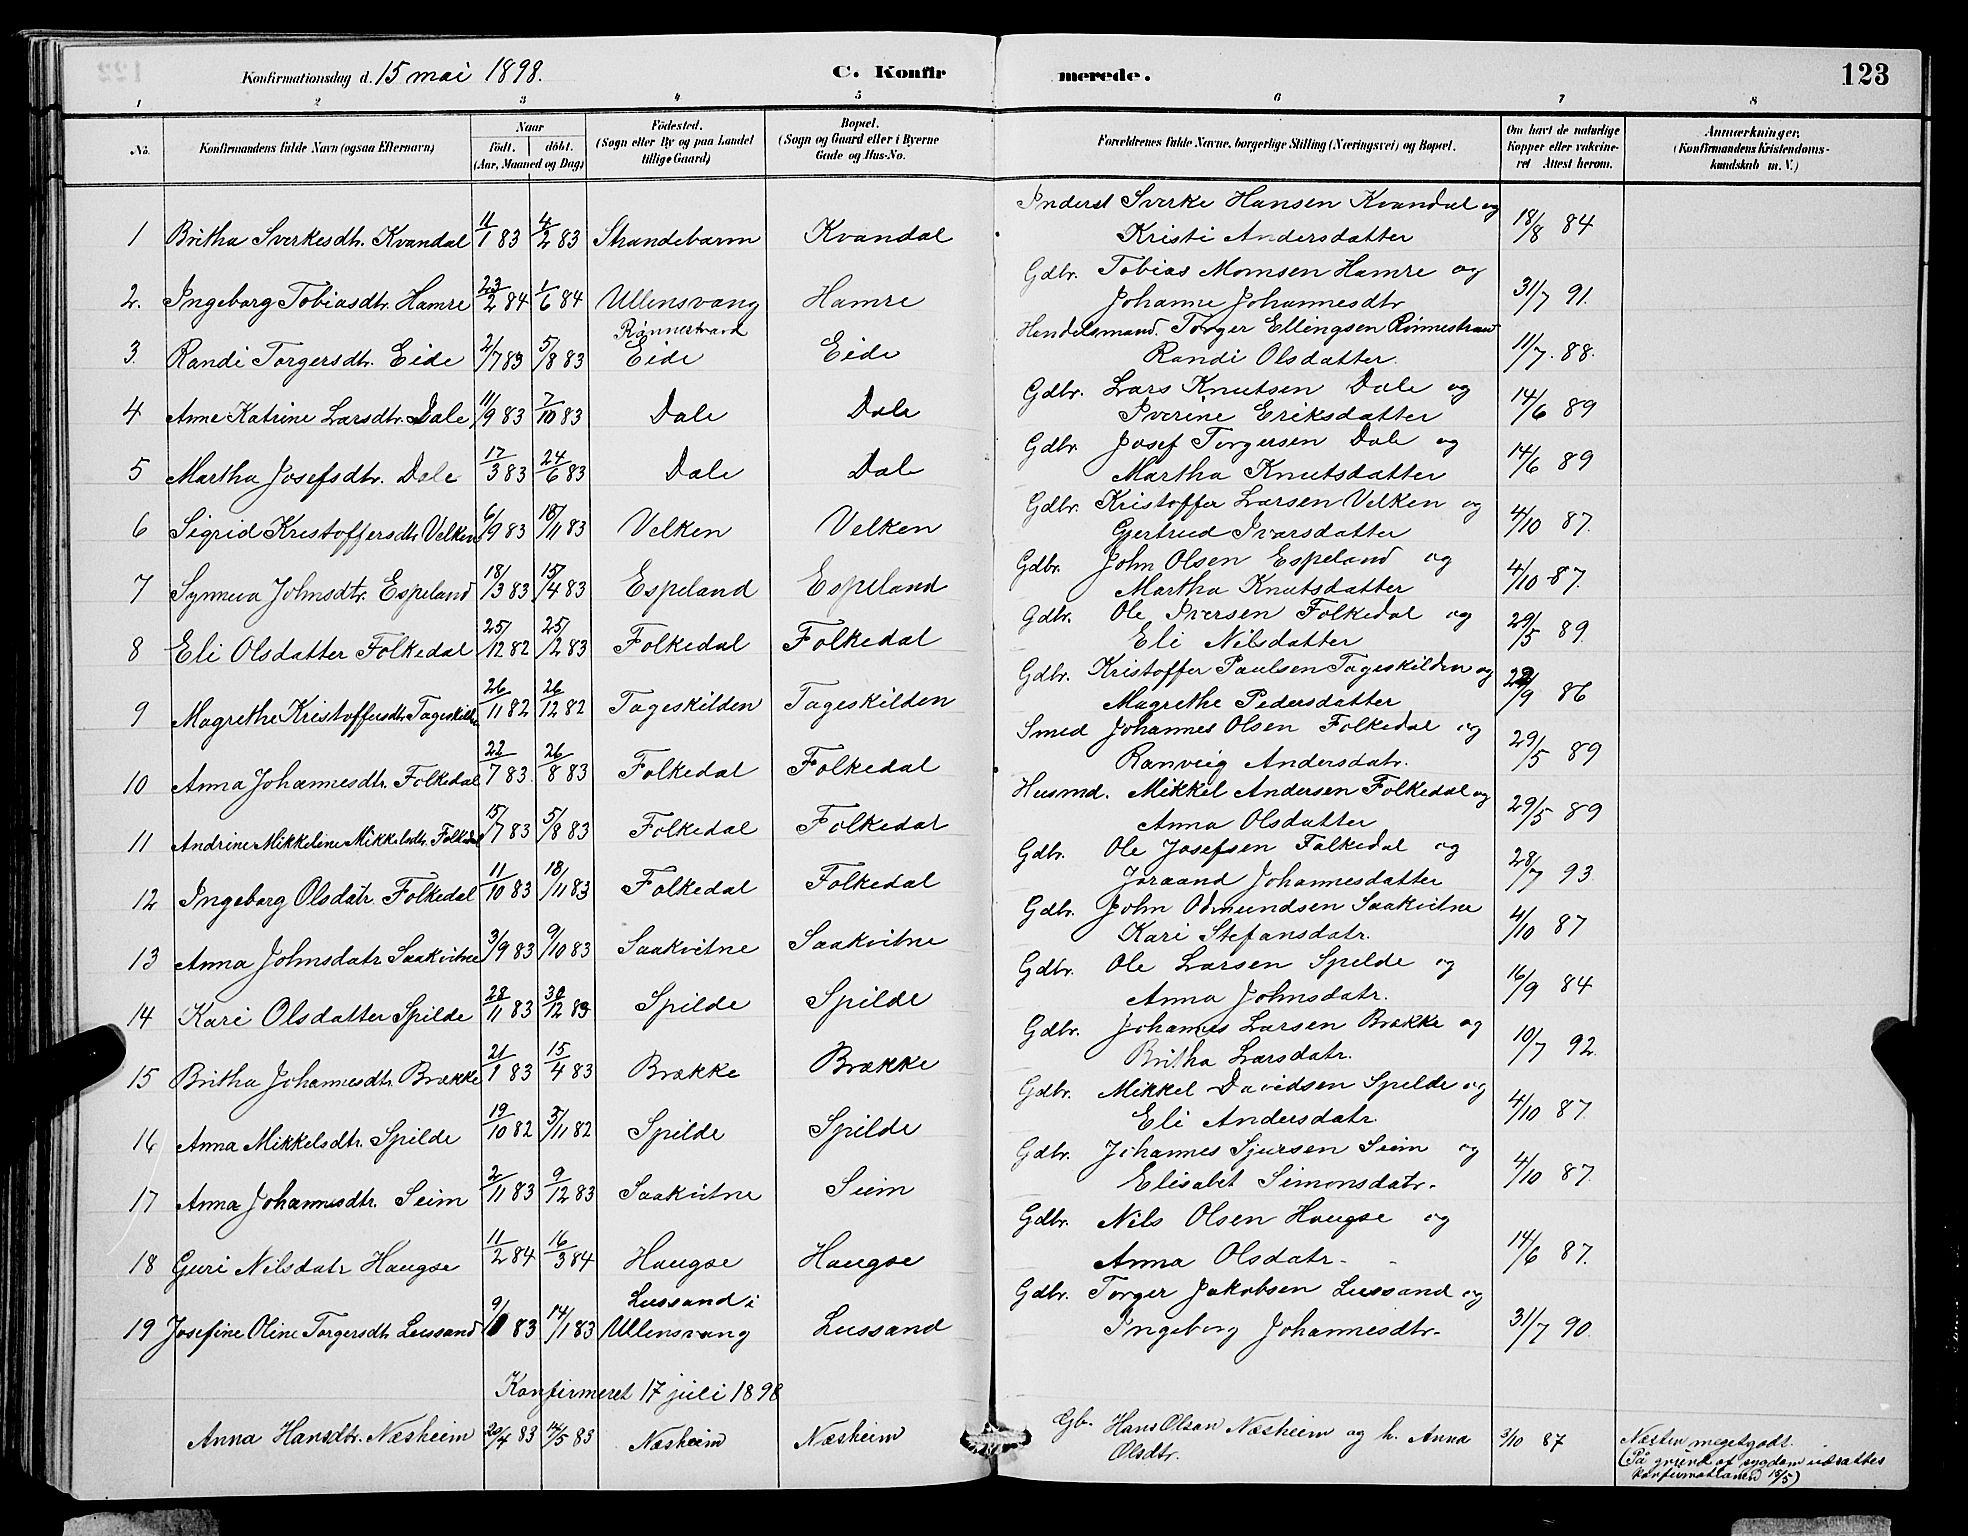 Konfirmationsdag d. 15 mai 1898. C. Konfirmerede. 123
1 2 3 4 5 6 7 8
No. Konfirmandens fulde Navn (ogsaa Efternavn) Naar født. døbt. (Aar, Maaned og Dag) Fødested. (Sogn eller By og paa Landet tillige Gaard) Bopæl. (Sogn og Gaard eller i Byerne Gade og Hus-No. Forældrenes fulde Navne, borgerlige Stilling (Næringsvei) og Bopæl. Om havt de naturlige Kopper eller vakcineret Attest herom. Anmærkninger. (Konfirmandens Kristendomskundskab m. V.)
1 Britha Sverkesdtr. Kvandal 11/1 83 4/2 83 Strandebarm Kvandal Inderst Sverke Hansen Kvandal og Kristi Andersdatter 18/8 84
2. Ingeborg Tobiasdtr. Hamre 23/2 84 1/6 84 Ullensvang Hamre Gdbr. Tobias Monsen Hamre og Johanne Johannesdtr 31/7 91.
3. Randi Torgersdtr. Eide 2/7 83 5/8 83 Rønnestrand Eide Eide Handelsmand. Torger Ellingsen Rønnestrand Randi Olsdatter. 11/7. 88.
4 Anne Katrine Larsdtr. Dale 11/9 83 7/10 83 Dale Dale Gdbr. Lars Knutsen Dale og Iverine Eriksdatter 14/6 89
5 Martha Josefsdtr. Dale 17/3 83 24/6 83 Dale Dale Gdbr. Josef Torgersen Dale og Martha Knutsdatter 14/6 89
6 Sigrid Kristoffersdtr Velken 6/9 83 18/11 83 Velken Velken Gdbr. Kristoffer Larsen Velken og Gjertrud Ivarsdatter 4/10 87.
7 Synneva Johnsdtr. Espeland 18/3 83 15/4 83 Espeland Espeland Gdbr. John Olsen Espeland og Martha Knutsdatter 4/10 87.
8 Eli Olsdatter Folkedal 25/12 82 25/2 83 Folkedal Folkedal Gdbr. Ole Iversen Folkedal og Eli Nilsdatter 29/5 89.
9 Magrethe Kristoffersdtr Tageskilden 26/11 82 26/12 82 Tageskilden Tageskilden Gdbr. Kristoffer Paulsen Tageskilden og Magrethe Pedersdatter /9 86
10 Anna Johannesdtr. Folkedal 22/7 83. 26/8 83 Folkedal Folkedal Smed Johannes Olsen Folkedal og Ranveig Andersdatr. 29/5 89
11 Andrine Mikkeline Mikkelsdtr. Folkedal 15/7 83 5/8 83 Folkedal Folkedal Husmd. Mikkel Andersen Folkedal og Anna Olsdatter 29/5 89
12 Ingeborg Olsdatr. Folkedal 11/10 83 18/11 83 Folkedal Folkedal Gdbr. Ole Josefsen Folkedal og Joraand Johannesdatter 28/7 93.
13 Anna Johnsdatr Saakvitne 3/9 83 9/10 83 Saakvitne Saakvitne Gdbr. John Odmundsen Saakvitne Kari Stefansdatr. 4/10 87
14 Kari Olsdatter Spilde 28/11 83 30/12 83 Spilde Spilde Gdbr. Ole Larsen Spilde og Anna Johnsdatr. 16/9 84
15 Britha Johannesdtr. Brække 21/1 83 15/4 83 Brække Brække Gdbr. Johannes Larsen Brække og Britha Larsdatr. 10/7 92.
16 Anna Mikkelsdtr. Spilde 19/10 82 3/11 82 Spilde Spilde Gdbr. Mikkel Davidsen Spilde og Eli Andersdatr. 4/10 87.
17 Anna Johannesdtr. Seim 2/11 83 9/12 83 Saakvitne Seim Gdbr. Johannes Sjursen Seim og Elisabet Simonsdatr. 4/10 87.
18 Guri Nilsdatr Haugse 11/2 84 16/3 84 Haugse Haugse Gdbr. Nils Olsen Haugse og Anna Olsdatr. 14/6 87.
19 Josefine Oline Torgersdtr Lussand 9/ 83 14/1 83 Lussand i Ullensvang Lussand Gdbr. Torger Jakobsen Lussand og Ingeborg Johannesdtr. 31/7 90.
Konfirmeret 17 juli 1898
Anna Hansdtr. Næsheim 20/4 83 14/5 83 Næsheim Næsheim Gb. Hans Olsen Næsheim og h. Anna Olsdtr. 3/10 87 Næsten meget godt.
(På grund af sygdom udsattes
konfirmationen 15/5)